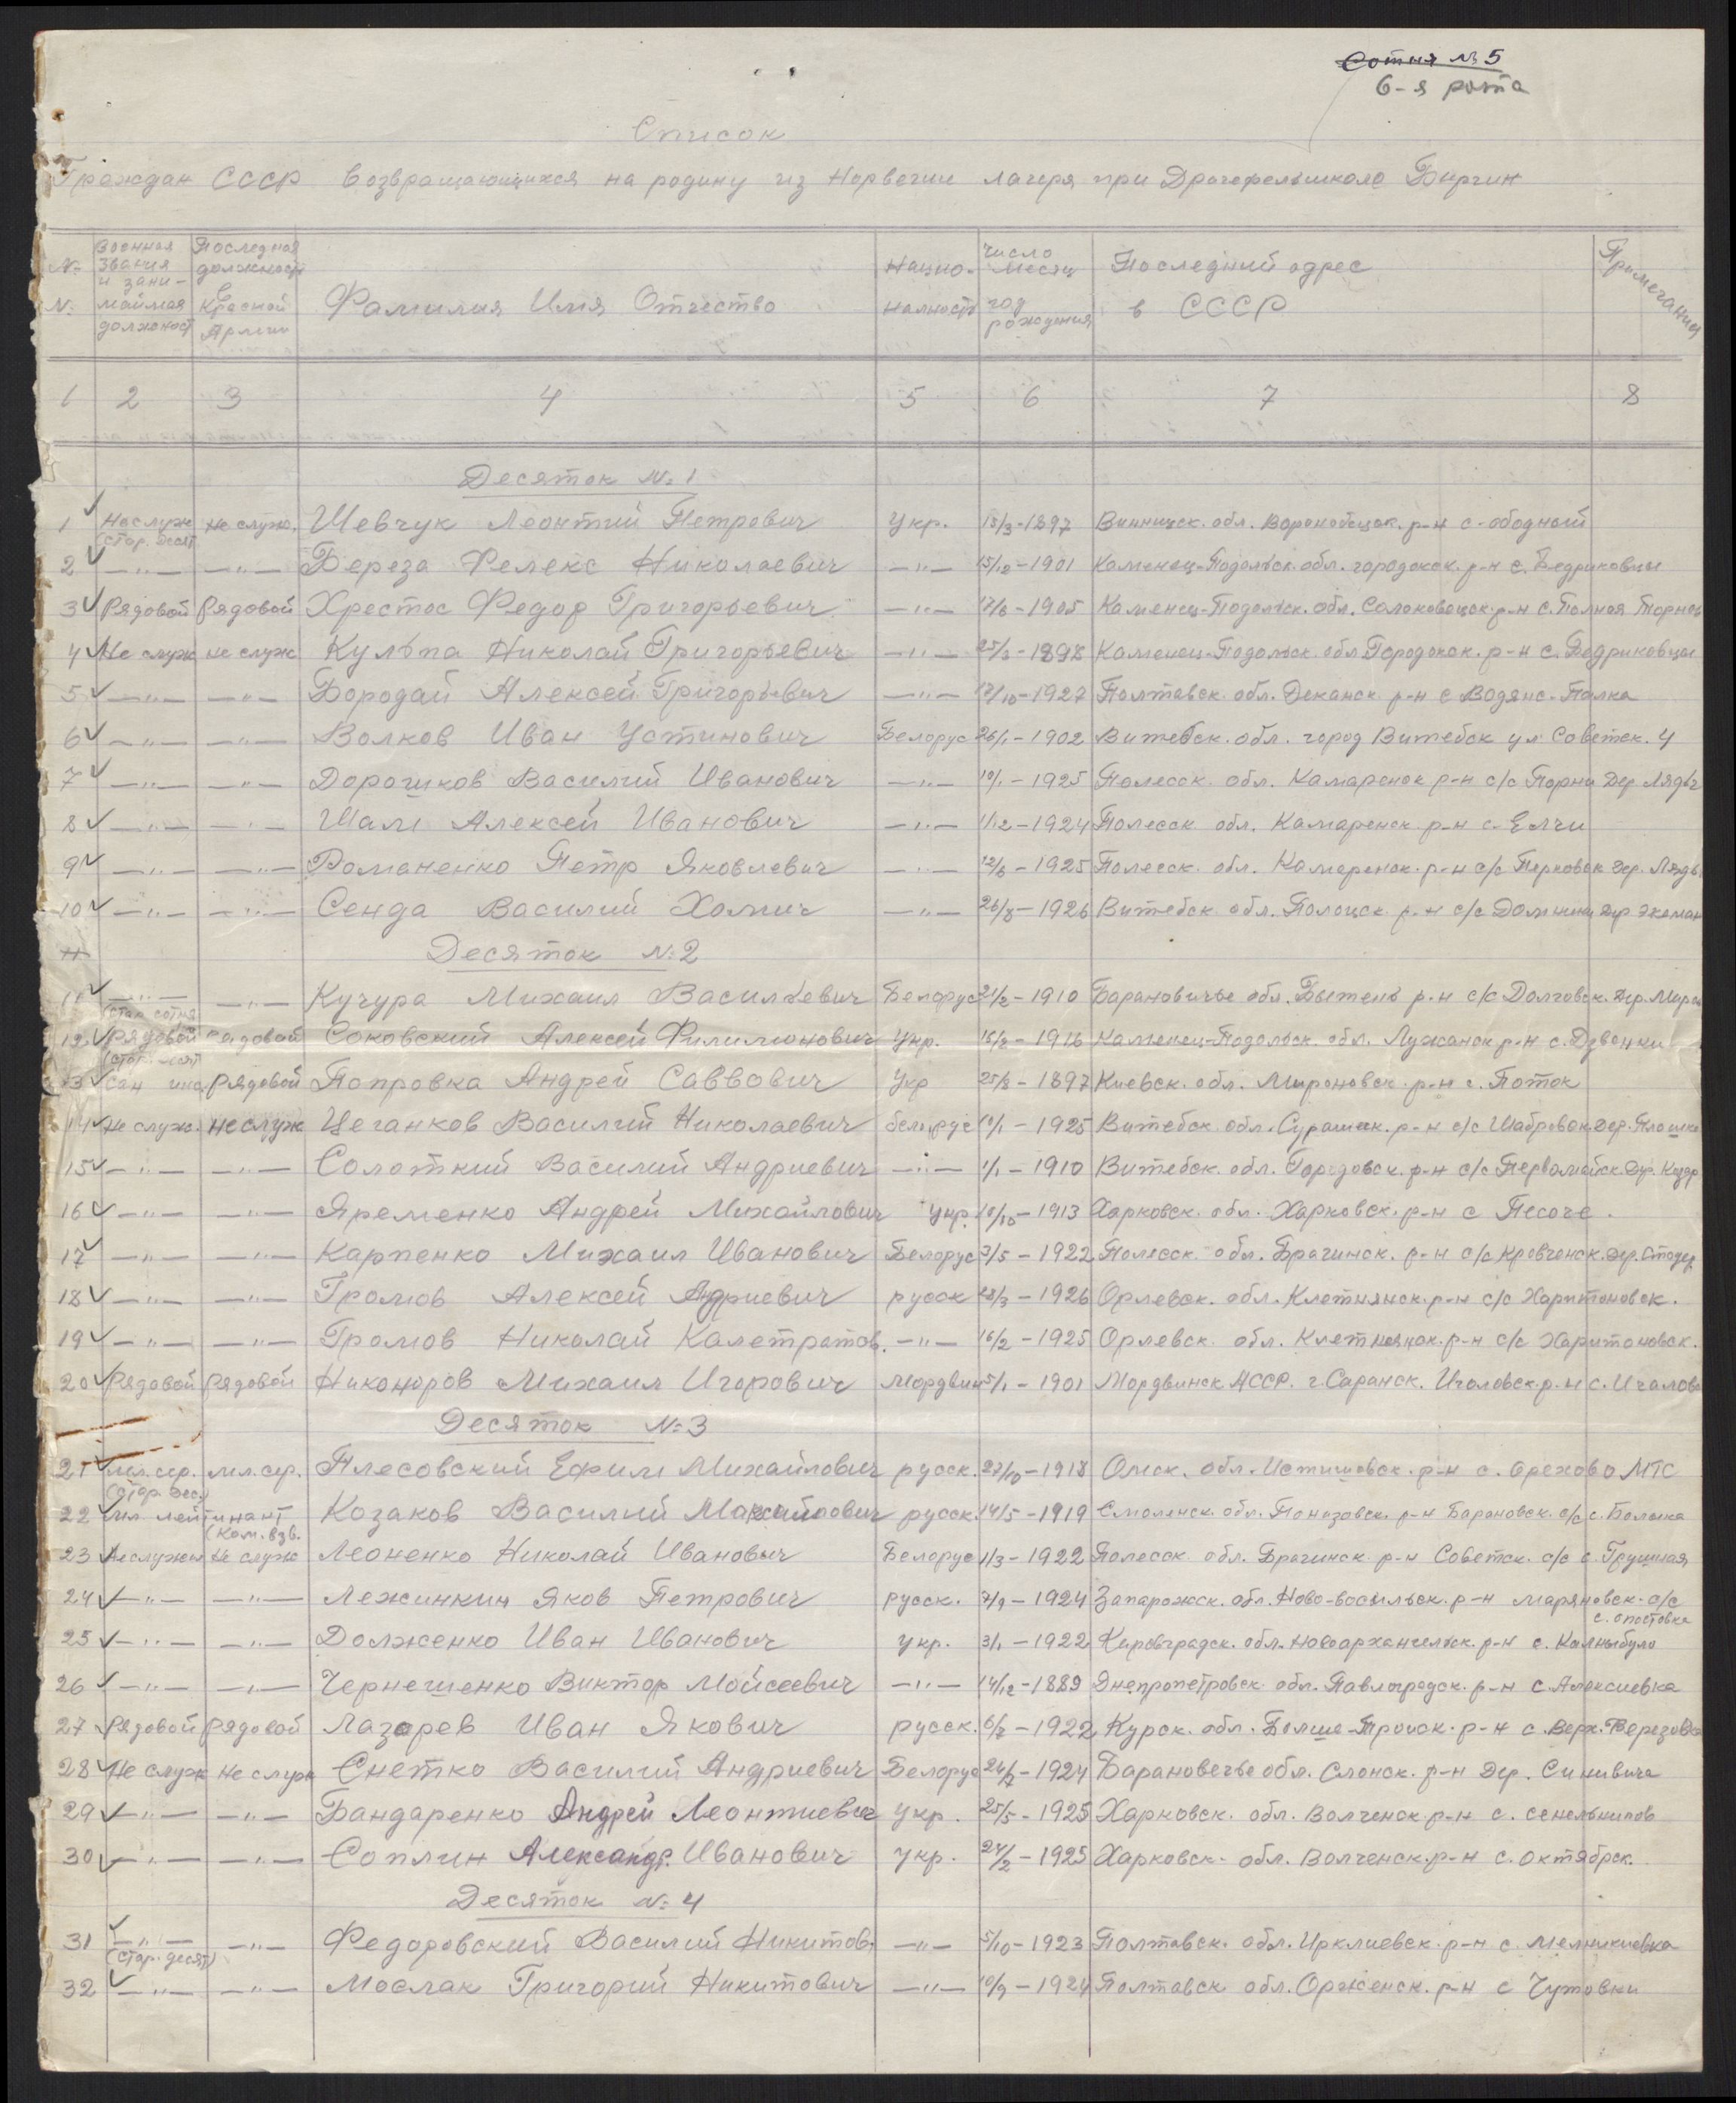 Сотня № 5
6-я рота
Список
Граждан СССР возвращающихся на родину из Норвегии лагеря при Драгефельшколе Бирген
№ № Военная звания и занимаймая должност Последная должность в Красной Армии Фамилия Имя Отчество Нацио-нальность число месяц год рождения Последний адрес в СССР Примечания
1 2 3 4 5 6 7 8
Десяток № 1
1 Неслуж (стар. десят. не служ. Шевчук Леонтий Петрович Укр. 15/3-1897 Винницск. обл. р-н с-ободный
2 —"— —"— Береза Фелекс Николаевич —"— 15/12-1901 Каменец-Подольск. обл. городокск. р-н с. Бедриковцы
3 Рядовой рядовой Хрестос Федор Григорьевич —"— 17/6-1905 Каменец-Подольск. обл. р-н с. Полная
4 Не служ не служ Культа Николай Григорьевич —"— 25/3-1898 Каменец-Подольск. обл Городокск. р-н с. Бедриковцы
5 —"— —"— Бородай Алексей Григорьевич —"— 17/10-1927 Полтавск. обл. Деканск. р-н с Водянс-Палка
6 —"— —"— Волков Иван Устинович Белорус 26/1-1902 Витебск. обл. город Витебск ул Советск. 4
7 —"— —"— Дорогиков Василий Иванович —"— 10/1-1925 Полесск. обл. Камаренск р-н с/с Дер Ляды
8 —"— —"— Шам Алексей Иванович —"— 1/12-1924 Полесск обл. Камаренск. р-н с. Елчи
9 —"— —"— Романенко Петр Яковлевич —"— 12/6-1925 Полесск. обл. Камаренск. р-н с/с дер. Ляды
10 —"— —"— Сенда Василий Хомич —"— 26/8-1926 Витебск обл. Полоцск р-н с/с Дер Экиман
11
Десяток № 2
11 —"— (стар. сотня —"— Кучура Михаил Васильевич Белорус 21/2-1910 Барановичье обл. Бытень р-н с/с Долговск. Дер.
12 Рядовой (стар. десят рядовой Соковский Алексей Филимонович Укр. 15/2-1916 Каменец-Подольск. обл. р-н с. Дзвонки
13 Сан инс. рядовой Попровка Андрей Саввович Укр 25/8-1897 Киевск. обл. Мироновск. р-н с. Поток
14 Не служ. не служ Цеганков Василий Николаевич белорус 10/1-1925 Витебск. обл. Сурашск. р-н с/с Дер.
15 —"— —"— Солоткий Василий Андриевич —"— 1/1-1910 Витебск. обл. р-н с/с Первомайск. Дер.
16 —"— —"— Яременко Андрей Михайлович Укр. 10/10-1913 Харковск. обл. Харковск. р-н с Песоче.
17 —"— —"— Карпенко Михаил Иванович Белорус 7/5-1922 Полесск. обл. Брагинск. р-н с/с дер.
18 —"— —"— Громов Алексей Андриевич русск 28/3-1926 Орлевск. обл. Клетнянск. р-н с/с Харитоновск.
19 —"— —"— Громов Николай Калетратов. —"— 16/2-1925 Орлевск. обл. Клетнянск. р-н с/с Харитоновск.
20 Рядовой рядовой Никоноров Михаил Игорович Мордвин 5/1-1901 Мордвинск АССР. г. Саранск. р-н с.
Десяток № 3
21 мл. сер. (стар. дес.) мл. сер. Плесовский Ефим Михайлович русск. 27/10-1918 Омск. обл. р-н с. Орехово МТС
22 мл лейтинант (ком. взв. Козаков Василий русск. 14/5-1919 Смоленск. обл. Понизовск. р-н Барановск. с/с с.
23 Не служил Не служ Леоненко Николай Иванович Белорус 1/3-1922 Полесск обл. Брагинск р-н Советск. с/с с. Грушная
24 —"— —"— Лежинкин Яков Петрович русск. 7/9-1924 Запарожск. обл. Ново-восильск. р-н Маряновск. с/с
с. Спостовка
25 —"— —"— Долженко Иван Иванович укр. 3/1-1922 Кировградск. обл. Новоархангельск. р-н с. Калныбуло
26 —"— —"— Чернешенко Виктор Мойсеевич —"— 14/12-1889 Днепропетровск обл. Павлоградск. р-н с. Алексиевка
27 Рядовой рядовой Лазарев Иван Якович русск. 6/7-1922 Курск. обл. Болше-Троиск. р-н с. Верх. Березовка
28 Не служ Не служ Снетко Василий Андриевич Белорус 24/7-1924 Барановечье обл. Слонск. р-н Дер. Синивича
29 —"— —"— Бандаренко Андрей Леонтиевич укр. 25/5-1925 Харковск. обл. Волченск. р-н с.
30 —"— —"— Соплин Александр. Иванович укр. 24/2-1925 Харковск. обл. Волченск. р-н с. Октябрск.
Десяток № 4
31 —"— (Стар. десят) —"— Федоровский Василий Никитов. —"— 5/10-1923 Полтавск. обл. Ирклиевск. р-н с.
32 —"— —"— Мослак Григорий Никитович —"— 10/9-1924 Полтавск обл. Орженск. р-н с Чутовки